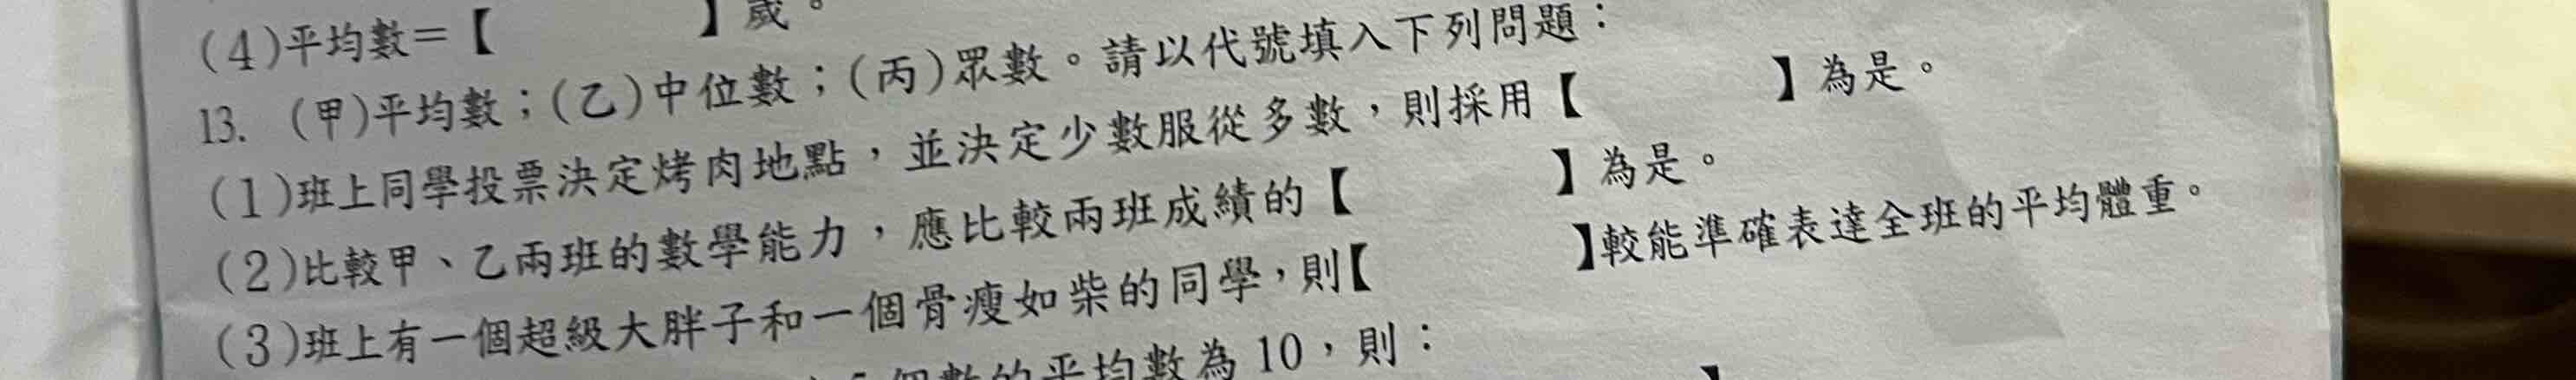 (4)平均數=【　　　】歲。
13. (甲)平均數；(乙)中位數；(丙)眾數。請以代號填入下列問題：
(1)班上同學投票決定烤肉地點，並決定少數服從多數，則採用【　　　】為是。
(2)比較甲、乙兩班的數學能力，應比較兩班成績的【　　　】為是。
(3)班上有一個超級大胖子和一個骨瘦如柴的同學，則【　　　】較能準確表達全班的平均體重。
個數的平均數為10，則：